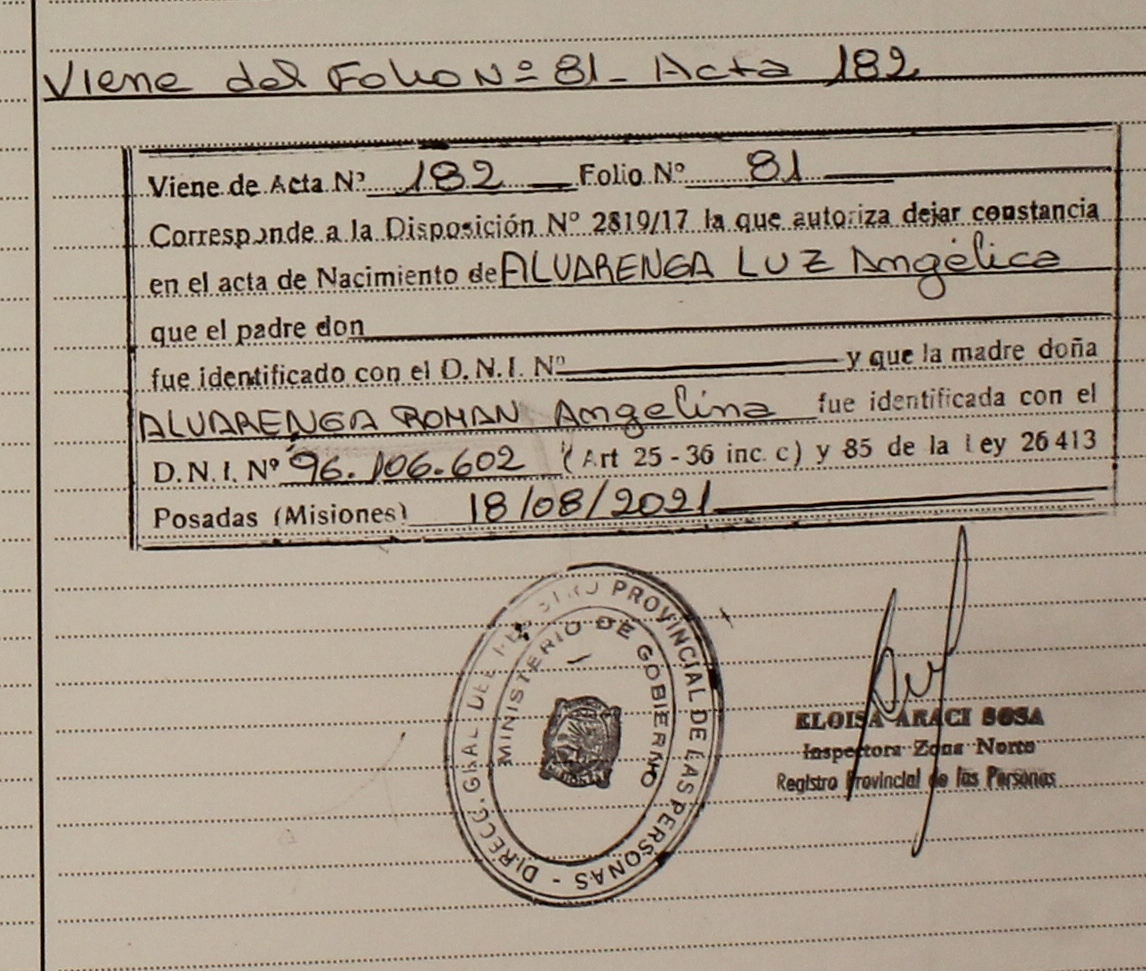 Viene del Folio Nº 81 - Acta 182
Viene de Acta Nº 182 Folio Nº 81
Corresponde a la Disposición Nº 2819/17 la que autoriza dejar constancia
en el acta de Nacimiento de ALVARENGA LUZ Angélica
que el padre don
fue identificado con el D.N.I. Nº y que la madre doña
ALVARENGA ROMAN Angelina fue identificada con el
D.N.I. Nº 96.106.602 (Art 25 - 36 inc. c) y 85 de la Ley 26413
Posadas (Misiones) 18/08/2021
DIRECC. GRAL DEL REGISTRO PROVINCIAL DE LAS PERSONAS -
MINISTERIO DE GOBIERNO
ELOISA ARACI SOSA
Inspectora Zona Norte
Registro Provincial de las Personas